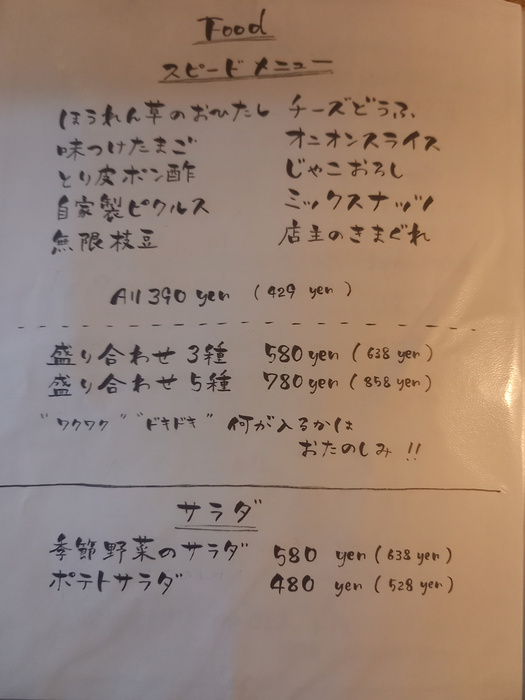 Food
スピードメニュー
ほうれん草のおひたし チーズどうふ
味つけたまご オニオンスライス
とり皮ポン酢 じゃこおろし
自家製ピクルス ミックスナッツ
無限枝豆 店主のきまぐれ
All 390 yen (429 yen)
盛り合わせ 3種 580 yen (638 yen)
盛り合わせ 5種 780 yen (858 yen)
"ワクワク" "ドキドキ" 何が入るかは
おたのしみ !!
サラダ
季節野菜のサラダ 580 yen (638 yen)
ポテトサラダ 480 yen (528 yen)